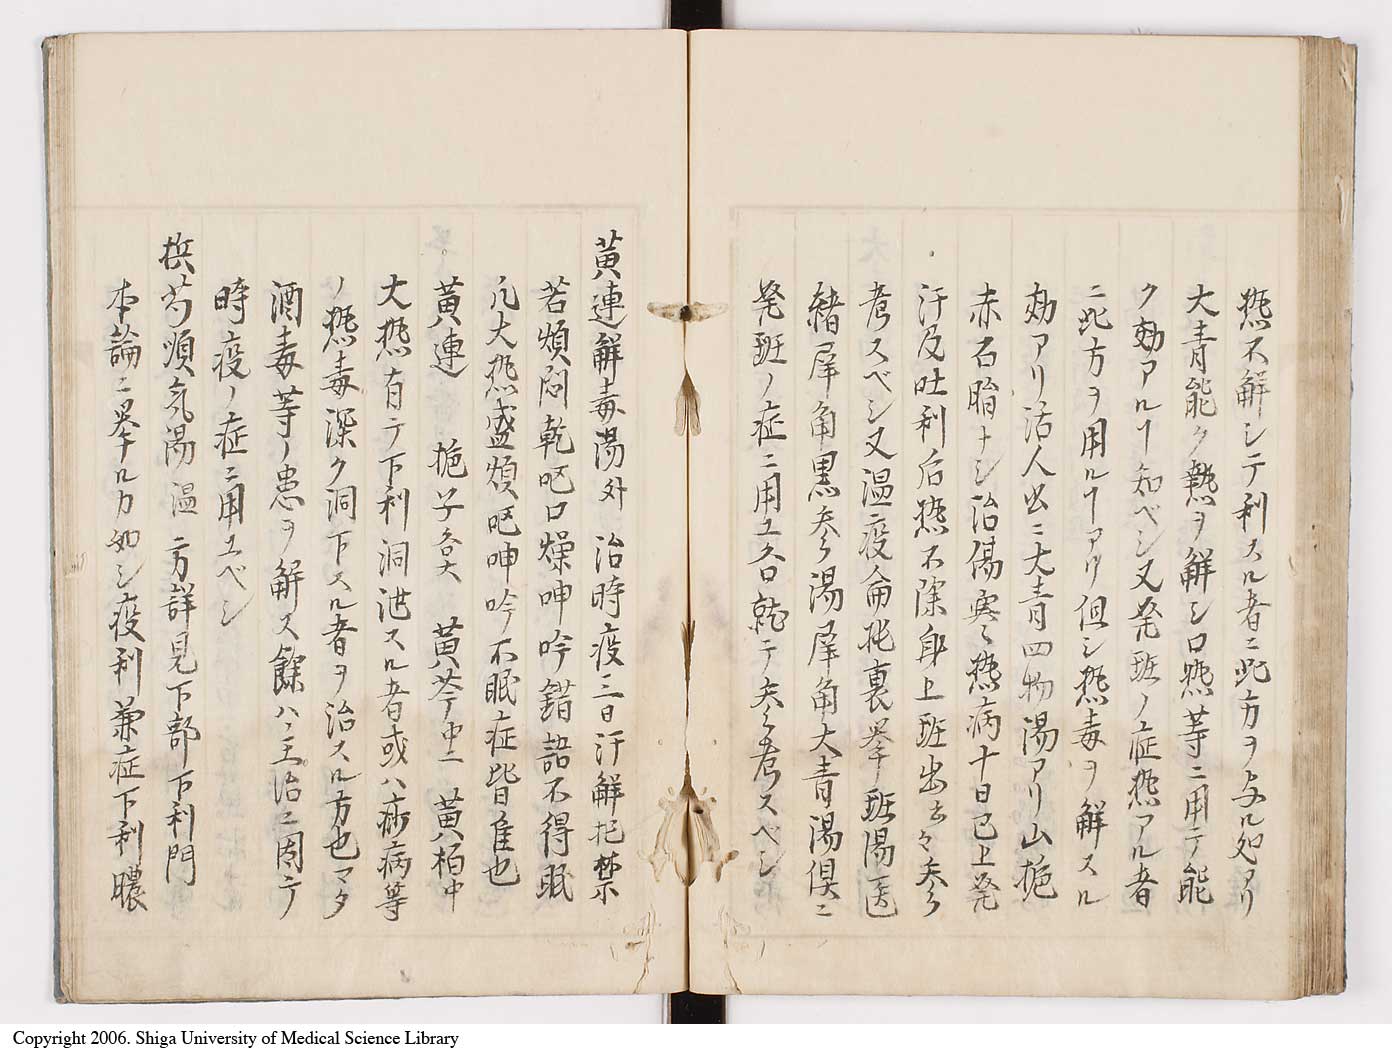 熱不解シテ利スル者ニ此方ヲ与ル処アリ
大青能ク熱ヲ解シ口熱等ニ用テ能
ク効アルヿ知ベシ又発斑ノ症熱アル者
ニ此方ヲ用ルヿアリ但シ熱毒ヲ解スル
効アリ活人出ニ大青四物湯アリ山梔
赤石脂ナシ治傷寒々熱病十日已上発
汗及吐利后熱不除身上斑出云々参
考スベシ又温疫論托裏挙斑湯医
緒犀角黒参湯犀角大青湯倶ニ
発斑ノ症ニ用ユ各就テ参考スベシ
黄連解毒湯外 治時疫三日汗解
若煩悶乾呕口燥呻吟錯語不得眠
凡大熱盛煩呕呻吟不眠症皆隹也
黄連 梔子各大 黄芩中二 黄柏中
大熱有テ下利洞泄スル者或ハ痧病等
ノ熱毒深ク洞下スル者ヲ治スル方也マタ
酒毒等ノ患ヲ解ス餘ハ主治ニ因テ
時疫ノ症ニ用ユベシ
槟芍順気湯温 方詳見下部下利門
本論ニ挙ルカ如シ疫利兼症下利膿